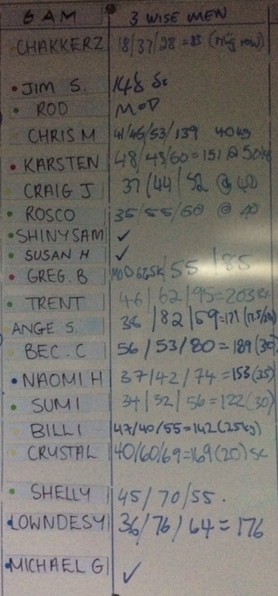 6 AM 3 WISE MEN
CHAKKERZ 18/37/28 = 83 (ring row)
JIM S. 148 Sc
ROD MOD
CHRIS M 41/45/53/139 40kg
KARSTEN 48/43/60 = 151 @ 50kg
CRAIG J 37/44/52 @ 40
ROSCO 35/55/60 @ 40
SHINYSAM ✓
SUSAN H ✓
GREG. B MOD 62SK/55/85
TRENT 46/62/95 = 203
ANGE S. 36/82/59 =
BEC. C 56/53/80 = 189 (30)
NAOMI H 37/42/74 = 153 (25)
SUMI 34/32/56 = 122 (30)
BILLI 47/40/55 = 142 (25kg)
CRYSTAL 40/60/69 = 169 (20) SC
SHELLY 45/70/55.
LOWNDESY 36/76/64 = 176
MICHAEL G ✓